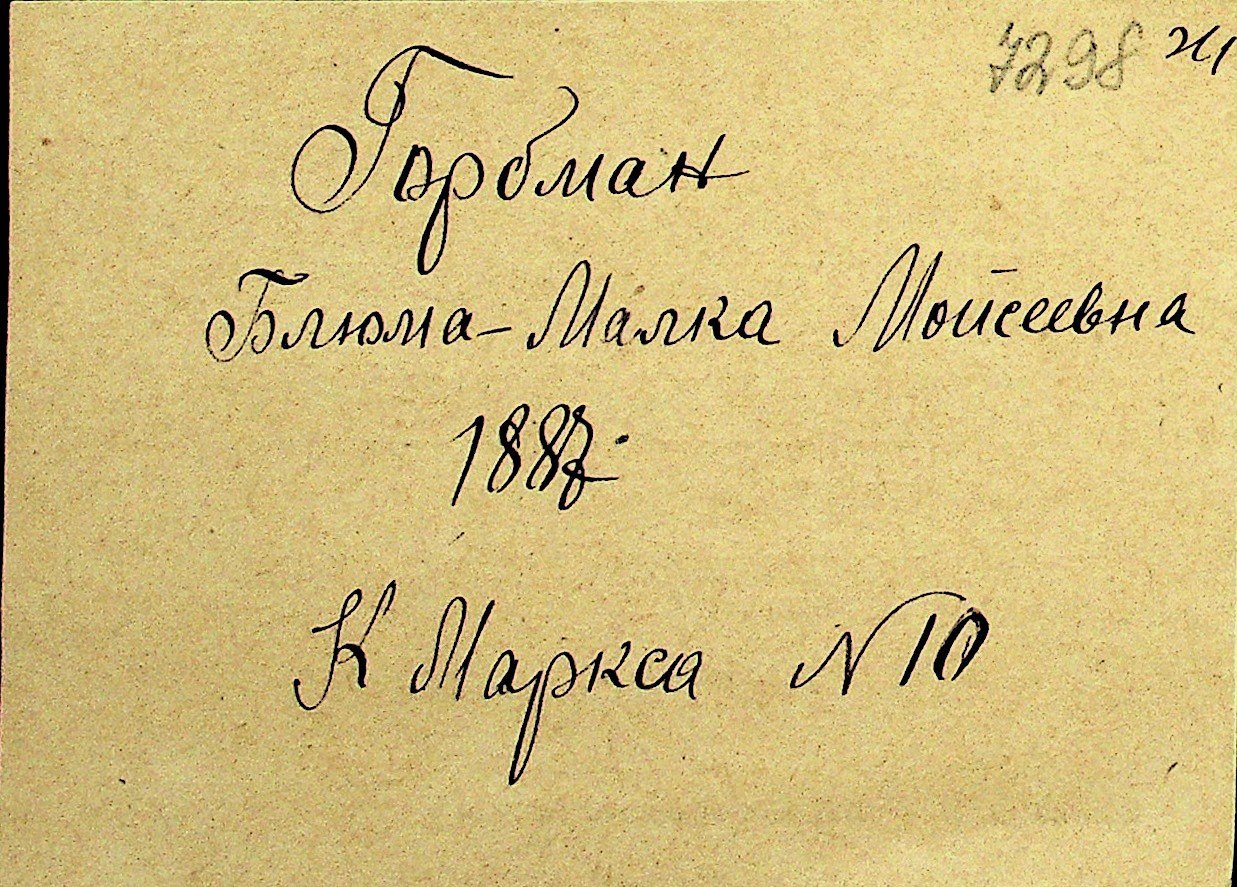 7298
Горбман
Блюма-Малка Моисеевна
1887
К Маркса N 10